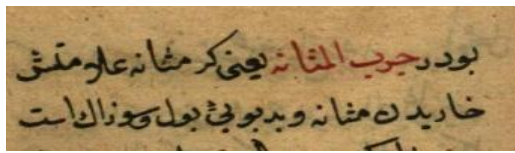 بود در جرب المثانه یعنی کر مثانه علامتش
خاریدن مثانه و بدبویئ بول و سوزاک است